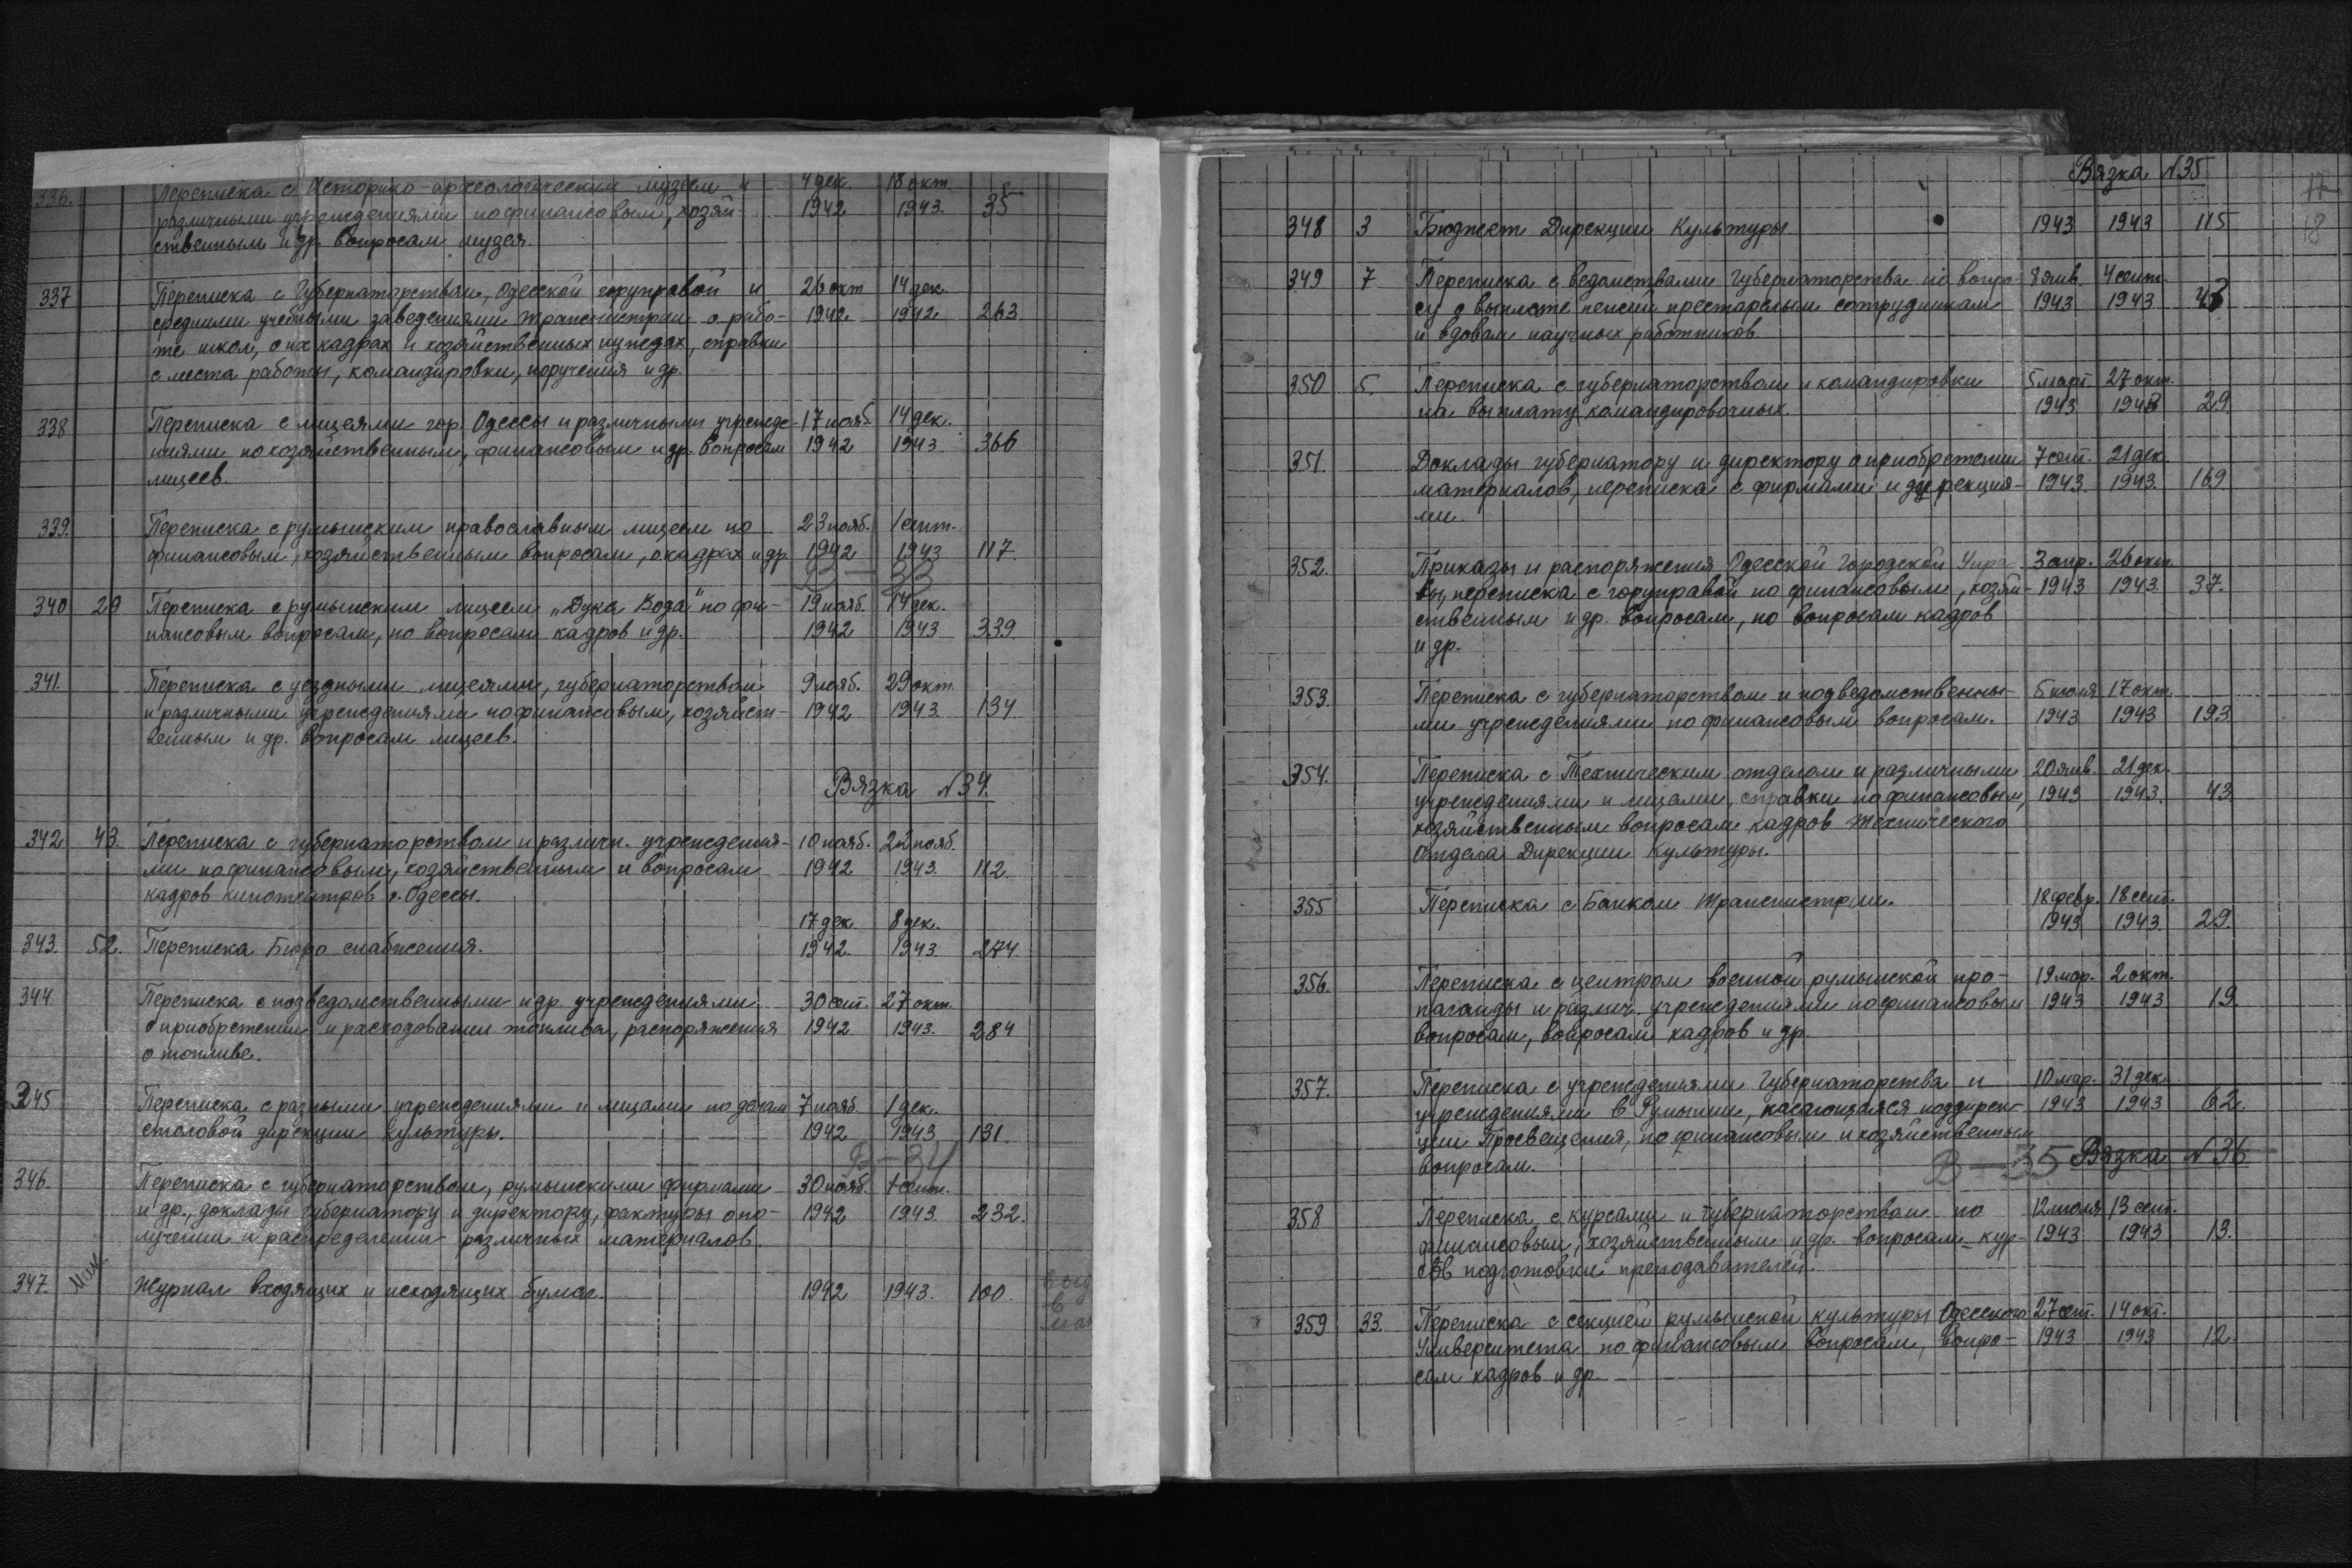 336. Переписка с Историко-археологическим музеем и 4 дек. 18 окт.
различными учреждениями по финансовым, хозяй- 1942 1943. 35
ственным и др. вопросам музея.
337 Переписка с Губернаторством, Одесской горуправой и 26 окт 14 дек.
средними учебными заведениями Транснистрии о рабо- 1942. 1942 263.
те школ, о их кадрах и хозяйственных нуждах, справки
с места работы, командировки, поручения и др.
338 Переписка с лицеями гор. Одессы и различными учрежде- 17 нояб. 14 дек.
ниями по хозяйственным, финансовым и др. вопросам 1942 1943. 366
лицеев.
339. Переписка с румынским православным лицеем по 23 нояб. 1 сент.
финансовым, хозяйственным вопросам, о кадрах и др. 1942 1943 117.
В-33
340 29 Переписка с румынским лицеем „Дука Вода" по фи- 19 нояб. 14 дек.
нансовым вопросам, по вопросам кадров и др. 1942 1943 339
341. Переписка с уездными лицеями, губернаторством 9 нояб. 29 окт.
и различными учреждениями по финансовым, хозяйст- 1942 1943. 134.
венным и др. вопросам лицеев.
Вязка № 34.
342 43. Переписка с губернаторством и различн. учреждения- 10 нояб. 22 нояб.
ми по финансовым, хозяйственным и вопросам 1942 1943. 112.
кадров кинотеатров г. Одессы.
17 дек. 8 дек.
343. 52. Переписка Бюро снабжения. 1942. 1943. 274.
344 Переписка с подведомственными и др. учреждениями 30 сент. 27 окт.
о приобретении и расходовании топлива, распоряжения 1942. 1943. 284
о топливе.
345 Переписка с разными учреждениями и лицами по делам 7 нояб. 1 дек.
столовой дирекции культуры. 1942 1943 131.
В-34
346. Переписка с губернаторством, румынскими фирмами 30 нояб. 7 сент.
и др., доклады губернатору и директору, фактуры о по- 1942 1943 232.
лучении и распределении различных материалов.
347. Журнал входящих и исходящих бумаг. 1942 1943. 100.
Вязка № 35
18
348 3 Бюджет Дирекции Культуры 1943 1943 115
349 7 Переписка с ведомствами Губернаторства по вопро- 8 янв. 4 сент.
су о выплате пенсии престарелым сотрудникам 1943 1943
и вдовам научных работников.
350 5. Переписка с губернаторством и командировки 5 март. 27 окт.
на выплату командировочных. 1943 1943 29.
351. Доклады губернатору и директору о приобретении 7 сент. 21 дек.
материалов, переписка с фирмами и дирекция- 1943. 1943. 169
ми.
352. Приказы и распоряжения Одесской Городской Упра- 3 апр. 26 окт.
вы, переписка с горуправой по финансовым, хозяй- 1943 1943. 37.
ственным и др. вопросам, по вопросам кадров
и др.
353. Переписка с губернаторством и подведомственны- 5 июля 17 окт.
ми учреждениями по финансовым вопросам. 1943 1943 193.
354. Переписка с Техническим отделом и различными 20 янв. 21 дек.
учреждениями и лицами, справки по финансовым, 1943 1943. 43.
хозяйственным вопросам кадров Технического
отдела Дирекции Культуры.
355 Переписка с Банком Транснистрии. 18 февр. 18 сент.
1943 1943. 29.
356. Переписка с центром военной румынской про- 19 мар. 2 окт.
паганды и различ. учреждениями по финансовым 1943 1943 19.
вопросам, вопросам кадров и др.
357. Переписка с учреждениями Губернаторства и 10 мар. 31 дек.
учреждениями в Румынии, касающаяся поддирек- 1943 1943 62.
ции Просвещения, по финансовым и хозяйственным
вопросам. В-35 Вязка № 36
358 Переписка с курсами и губернаторством по 12 июля 13 сент.
финансовым, хозяйственным и др. вопросам кур- 1943 1943 13.
сов подготовки преподавателей.
359 33. Переписка с секцией румынской культуры Одесского 27 сент. 14 окт.
Университета по финансовым вопросам, вопро- 1943 1943 12.
сам кадров и др.